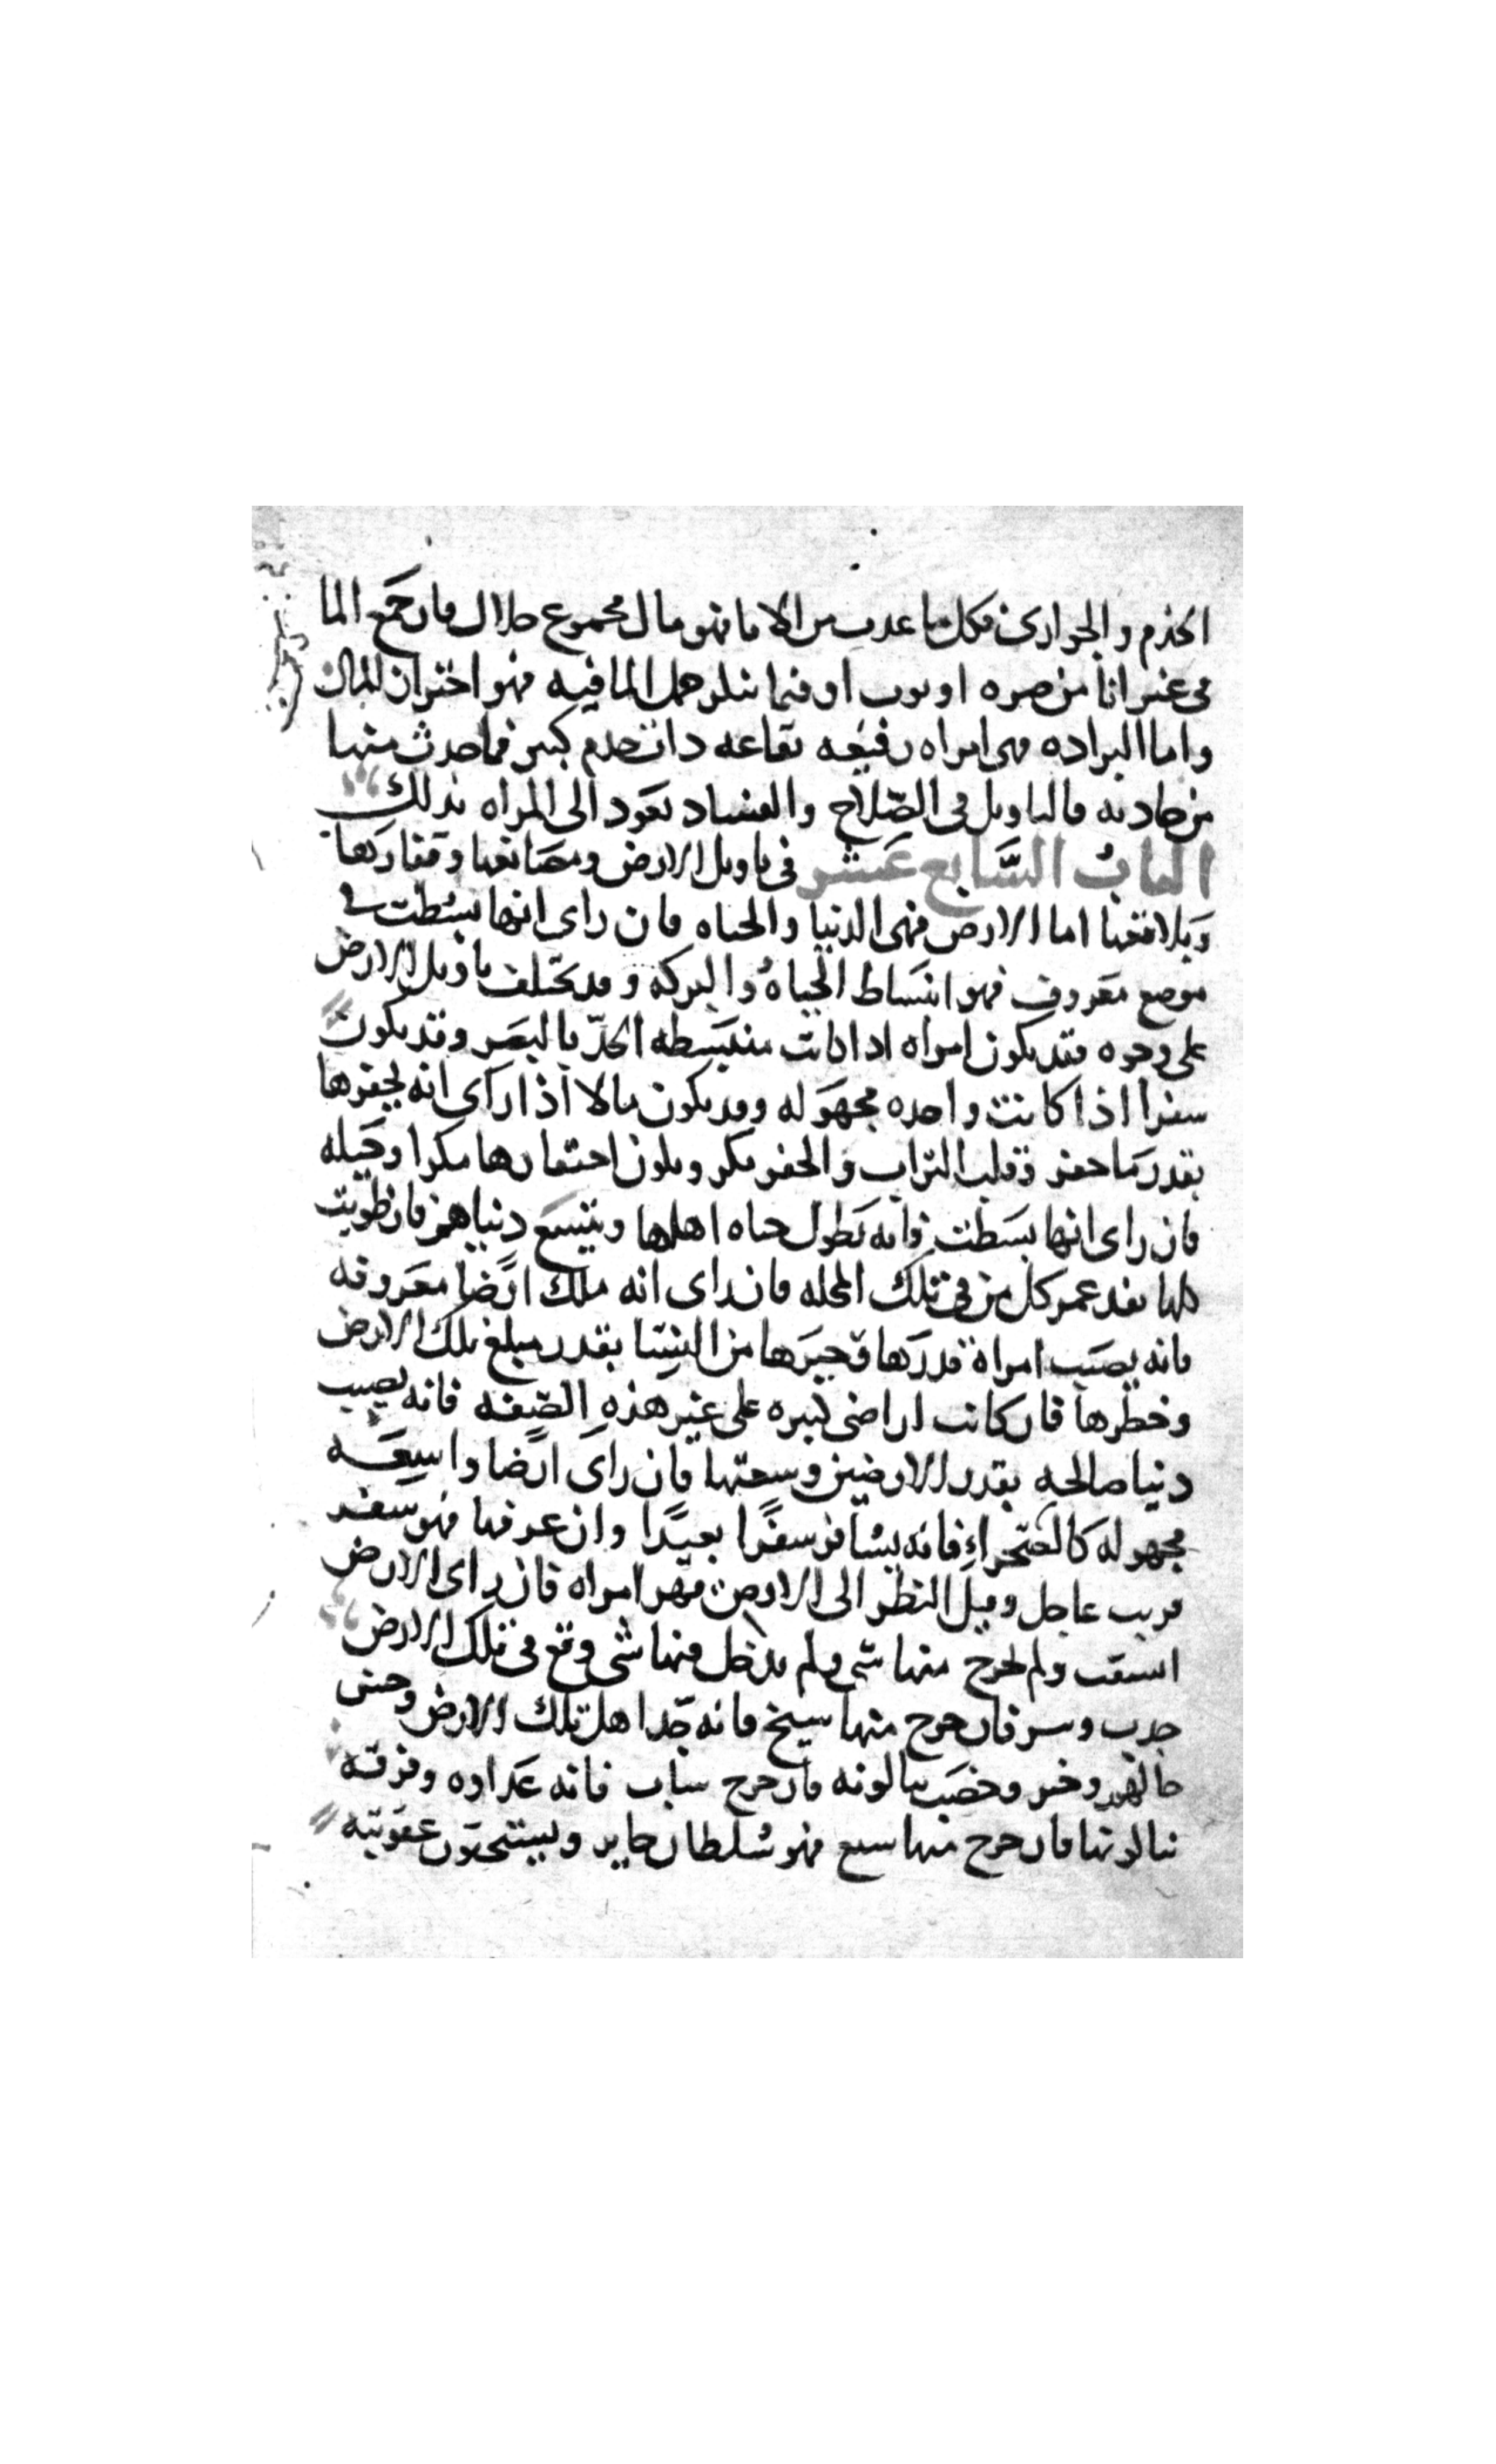 الخدم والجواري فكل ما عدب من الاما فهو مال مجموع حلال فان جمع الما
في غير انا من صره او ثوب او فيما ينكر حمل الما فيه فهو اختزان للمال
واما البراده فهي امراه رفيعه نفاعه ذات خدم كبير فما حدث منها
من حادثه فالتاويل في الصّلاح والفساد يعود الى المراه بذلك
الباب السَّابع عَشر في تاويل الارض ومصانعها وقفارها
وبلاقعها اما الارض فهي الدنيا والحياه فان راى انها بسُطت في
موضع معروف فهو انبساط الحياه والبركه وقد يختلف تاويل الارض
على وجوه فقد يكون امراه اذا كانت منبسطه الحدّ بالبصر وقد يكون
سفرا اذا كانت واحده مجهوله وقد يكون مالا اذا راى انه يحفرها
بقدر ما حفر وقلب التراب والحفر مكر ويكون احتفارها مكرا وحيله
فان راى انها بسَطت فانه تطول حياه اهلها ويتسع دنياهم فان طويت
كلها نفد عمر كل من في تلك المحله فان راى انه ملك ارضا معروفه
فانه يصيب امراة قدرها وخيرها من النسا بقدر مبلغ تلك الارض
وخطرها فان كانت اراضى كبيره على غير هذه الصّفه فانه يصيب
دنيا صالحه بقدر الارضين وسعتها فان راى ارضا واسعَه
مجهوله كالصَّحراءِ فانه يسافر سفرًا بعيدًا وان عرفها فهو سفر
قريب عاجل وقيل النظر الى الارض فهو امراه فان راى الارض
انشقت ولم يخرج منها شي ولم يدخل فيها شي وقع في تلك الارض
جدب وسر فان خرج منها شيخ فانه جَد اهل تلك الارض وحسن
حالهم وخير وخصب ينالونه فان خرج شاب فانه عداوه وفرقه
ينالونها فان خرج منها سبع فهو سُلطان جاير ويستحقون عقوبته